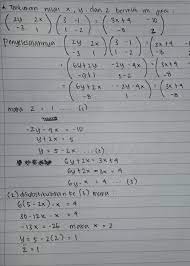 Tentukan nilai x, y, dan z berikut ini jika :
(2y 2x / -3 1) (3 -1 / 1 -2) = (3x+9 -10 / -8 z)
Penyelesaiannya
(2y 2x / -3 1) (3 -1 / 1 -2) = (3x+9 -10 / -8 z)
(6y+2x -2y-4x / -9+1 3-2) = (3x+9
(6y+2x -2y-4x / -8 1) = (3x+9
maka z = 1 ... (1)
-2y-4x = -10
y+2x = 5
y = 5-2x ... (2)
6y+2x = 3x+9
6y+2x-3x = 9
6y-x = 9 ... (3)
(2) disubstitusikan ke (3) maka :
6(5-2x)-x = 9
30-12x-x = 9
-13x = -26 maka x = 2
y = 5-2(2) = 1
z = 1